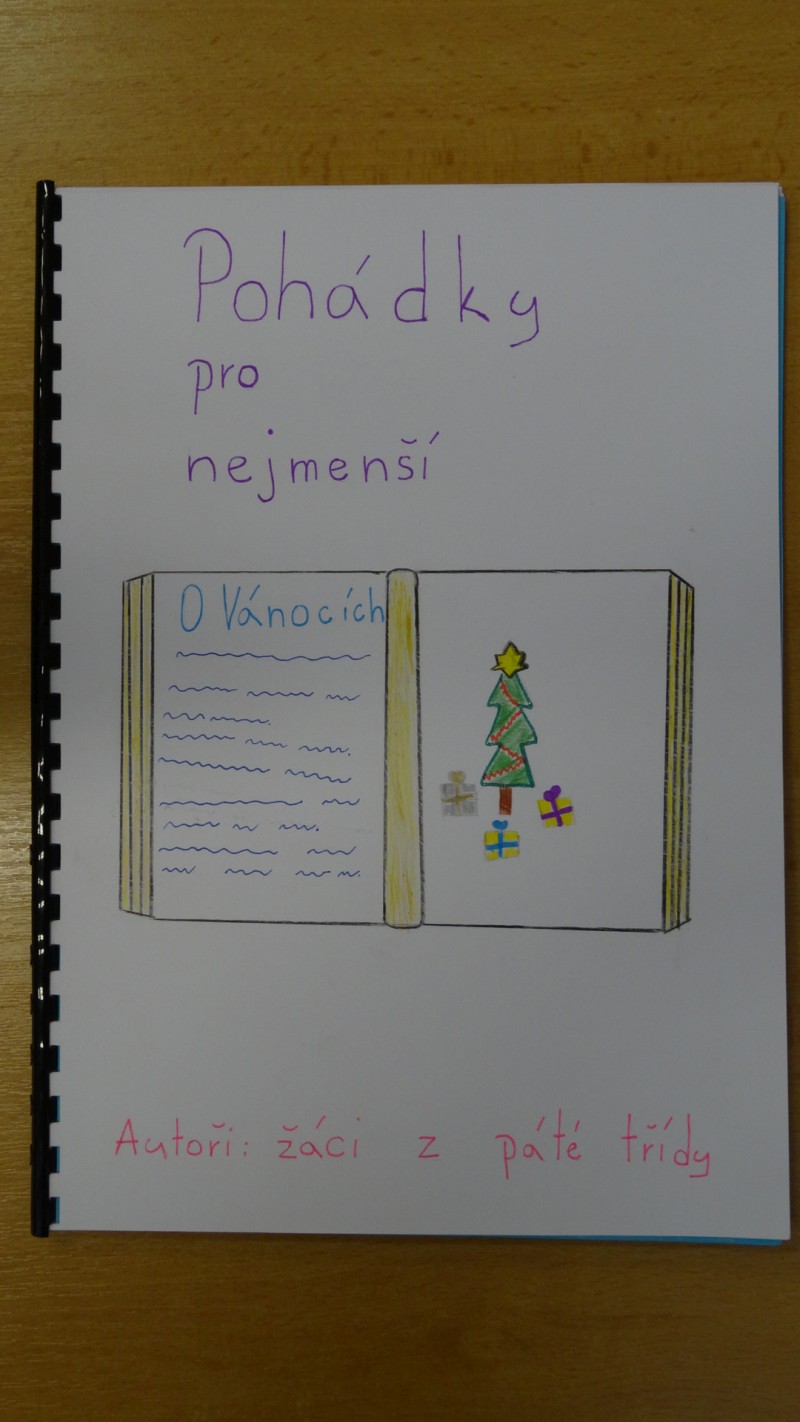 Pohádky
pro
nejmenší
O Vánocích
Autoři: žáci z páté třídy